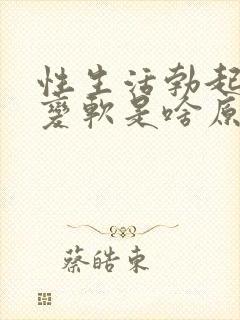 性生活勃起
变软是啥原
蔡皓东